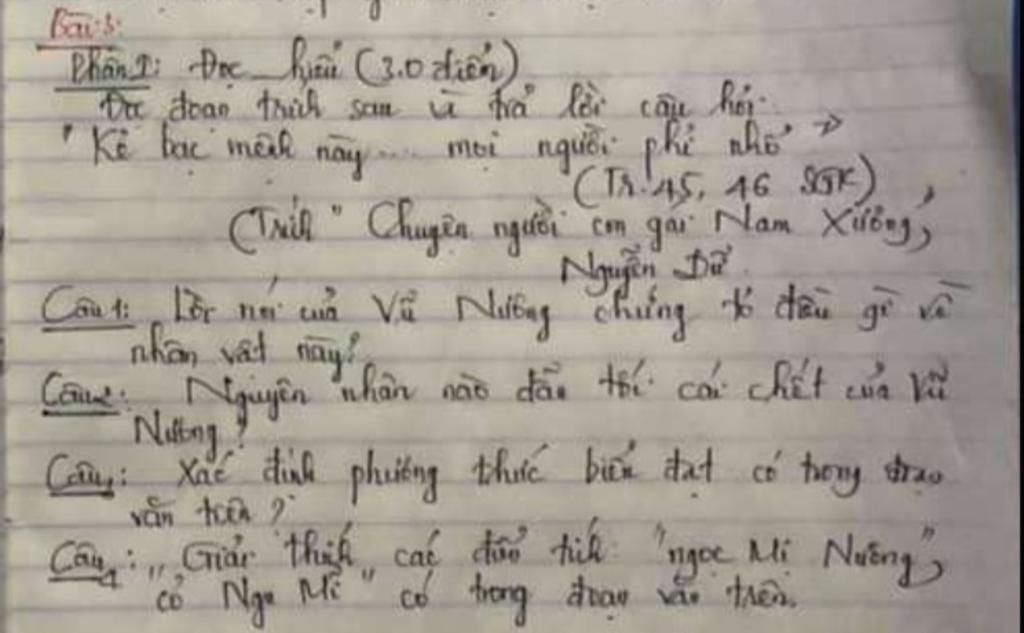 Bài 3:
Phần I: Đọc hiểu (3.0 điểm)
Đọc đoạn trích sau và trả lời câu hỏi.
"Kẻ bạc mệnh này .... mọi người phỉ nhổ"
(Tr.45, 46 SGK)
(Trích "Chuyện người con gái Nam Xương,
Nguyễn Dữ
Câu 1: Lời nói của Vũ Nương chứng tỏ điều gì về
nhân vật này?
Câu 2: Nguyên nhân nào dẫn tới cái chết của Vũ
Nương?
Câu: Xác định phương thức biểu đạt có trong đoạn
văn trên?
Câu 4: Giải thích các điển tích: "ngọc Mị Nương",
"cỏ Ngu Mĩ" có trong đoạn văn trên.